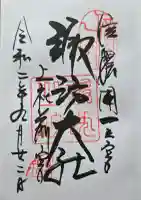 信濃國一之宮
諏訪大社
上社本宮
令和二年九月廿二日